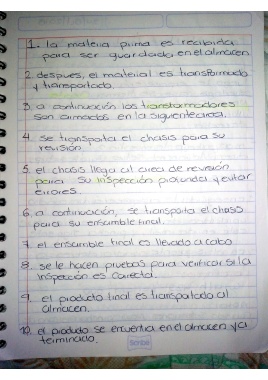 1. la materia prima es recibida
para ser guardada en el almacen
2. despues, el material es transformado
y transportado.
3. a continuación los transformadores
son armados en la siguiente area.
4. se transporta el chasis para su
revisión.
5. el chasis llega al area de revisión
para su inspección profunda y evitar
errores.
6. a continuación, se transporta el chasis
para su ensamble final.
7. el ensamble final es llevado a cabo
8. se le hacen pruebas para verificar si la
inspección es correcta.
9. el producto final es transportado al
almacen.
10. el producto se encuentra en el almacen ya
terminado.
Scribe